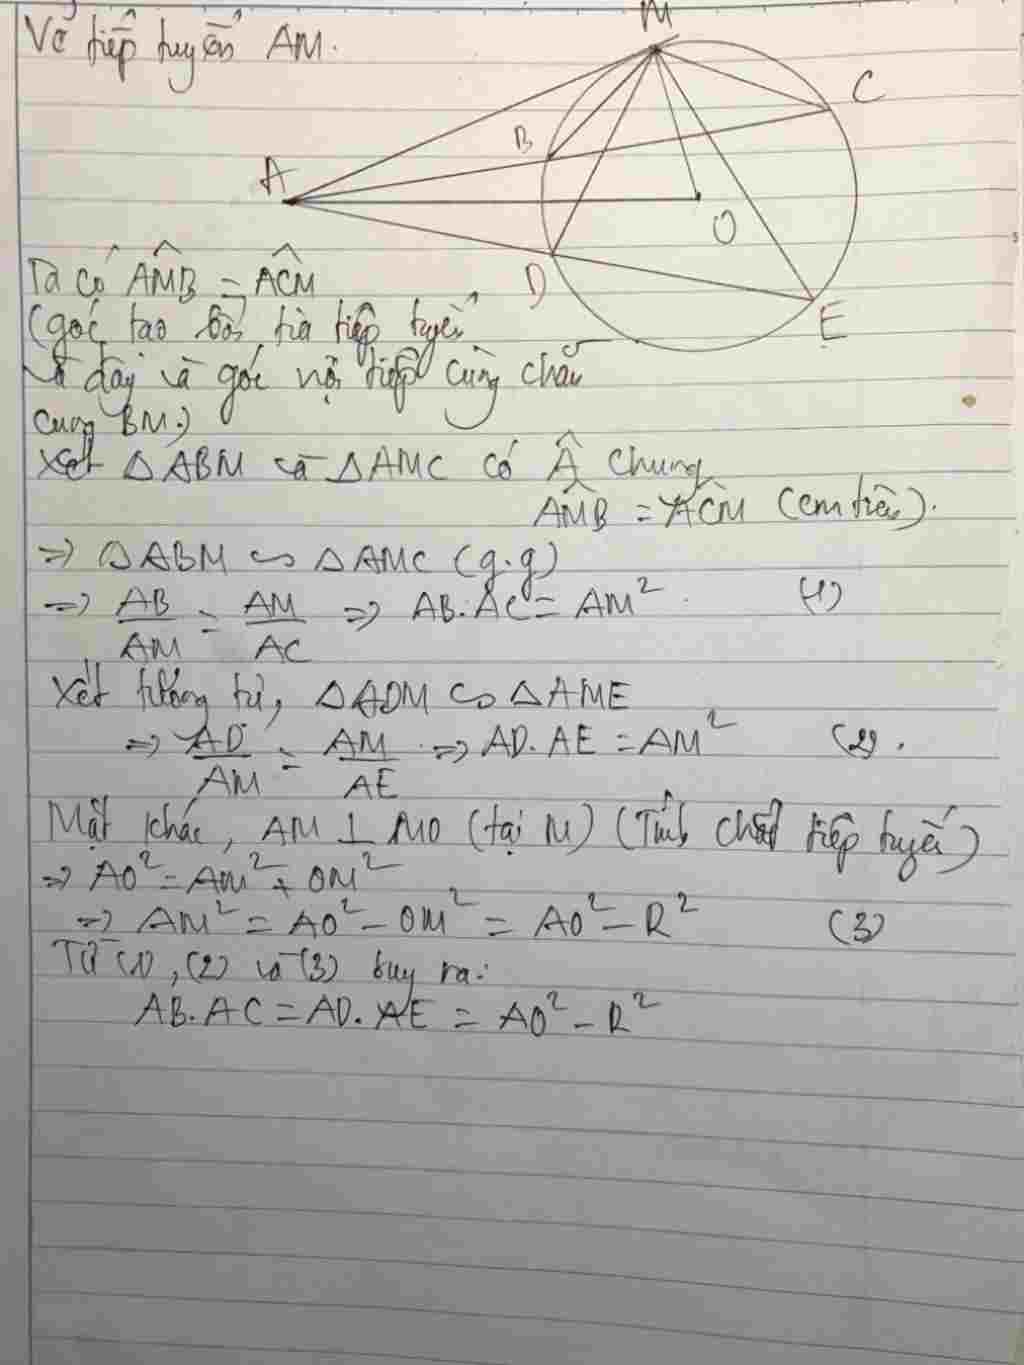 Vẽ tiếp tuyến AM.
M
C
B
A
O
D
E
Ta có AM̂B = AĈM
(góc tạo bởi tia tiếp tuyến
và dây và góc nội tiếp cùng chắn
cung BM)
Xét △ABM và △AMC có Â chung
AM̂B = AĈM (cm trên).
=> △ABM ∽ △AMC (g.g)
=> AB/AM = AM/AC => AB.AC = AM². (1)
Xét tương tự, △ADM ∽ △AME
=> AD/AM = AM/AE => AD.AE = AM² (2).
Mặt khác, AM ⊥ MO (tại M) (Tính chất tiếp tuyến)
=> AO² = AM² + OM²
=> AM² = AO² - OM² = AO² - R² (3)
Từ (1), (2) và (3) suy ra:
AB.AC = AD.AE = AO² - R²